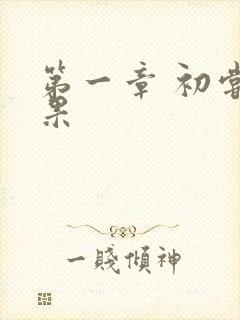 第一章 初尝
果
一賤傾神